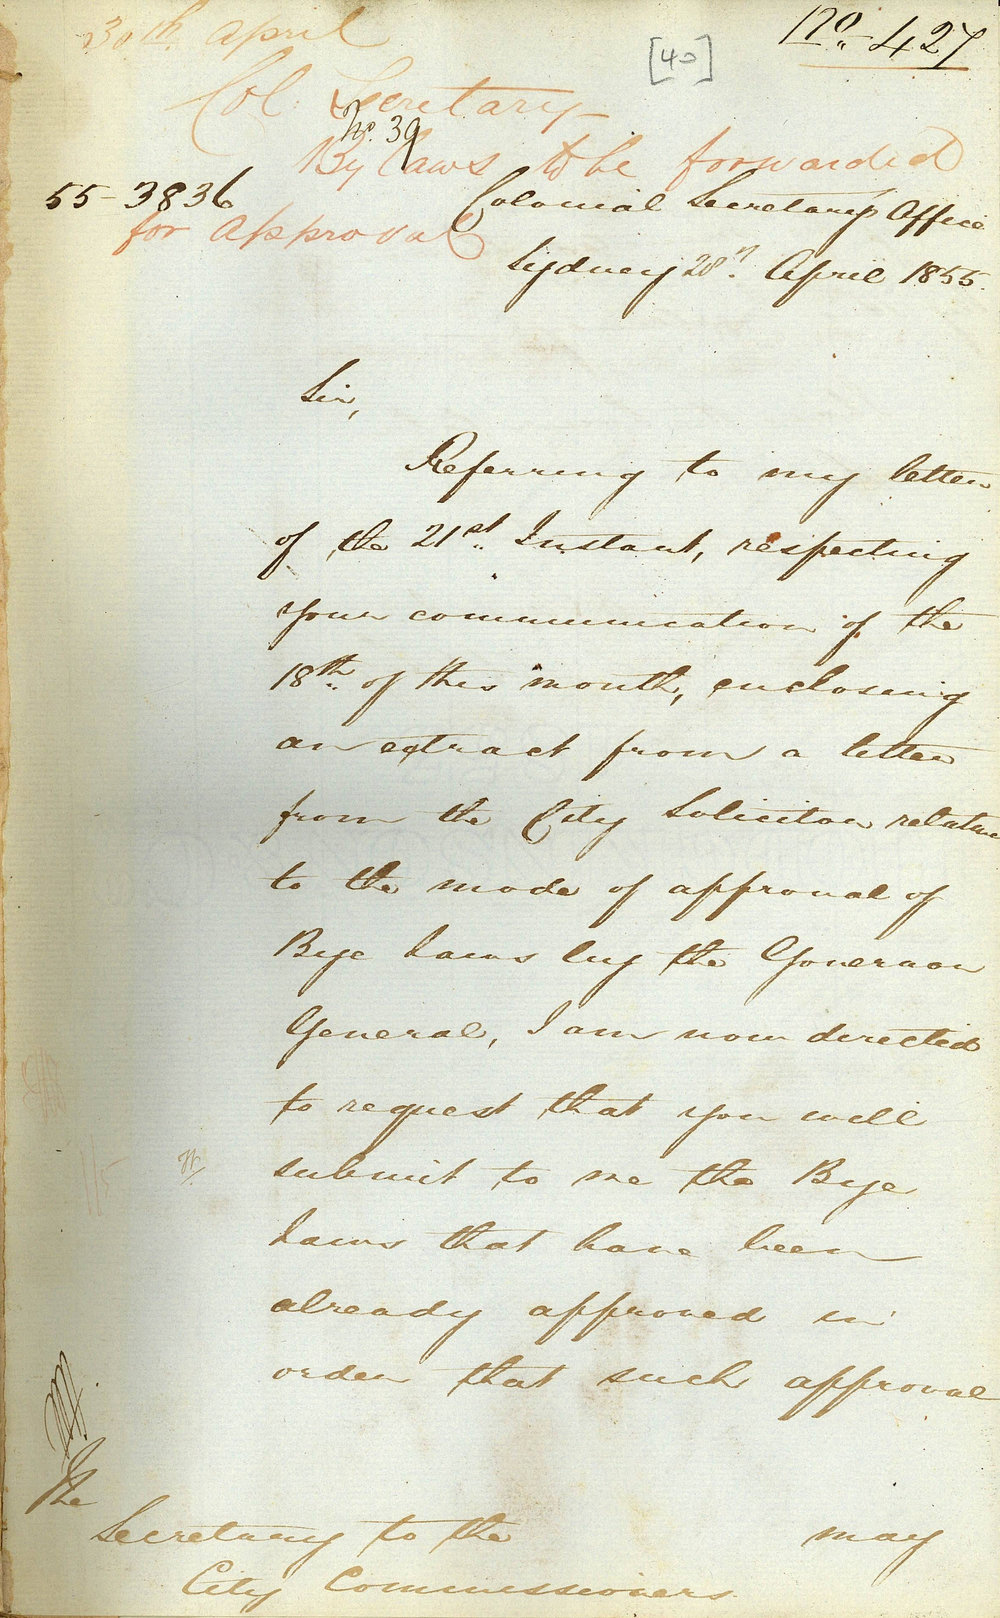 30th April
No. 427
[40]
Col. Secretary
No. 39
By laws to be forwarded
55-3836
for approval
Colonial Secretarys Office
Sydney 28th. April 1855.
Sir,
Referring to my letter
of the 21st. Instant, respecting
your communication of the
18th. of this month, enclosing
an extract from a letter
from the City Solicitor relative
to the mode of approval of
Bye Laws by the Governor
General, I am now directed
to request that you will
submit to me the Bye
Laws that have been
already approved in
order that such approval
The
Secretary to the
may
City Commissioners.